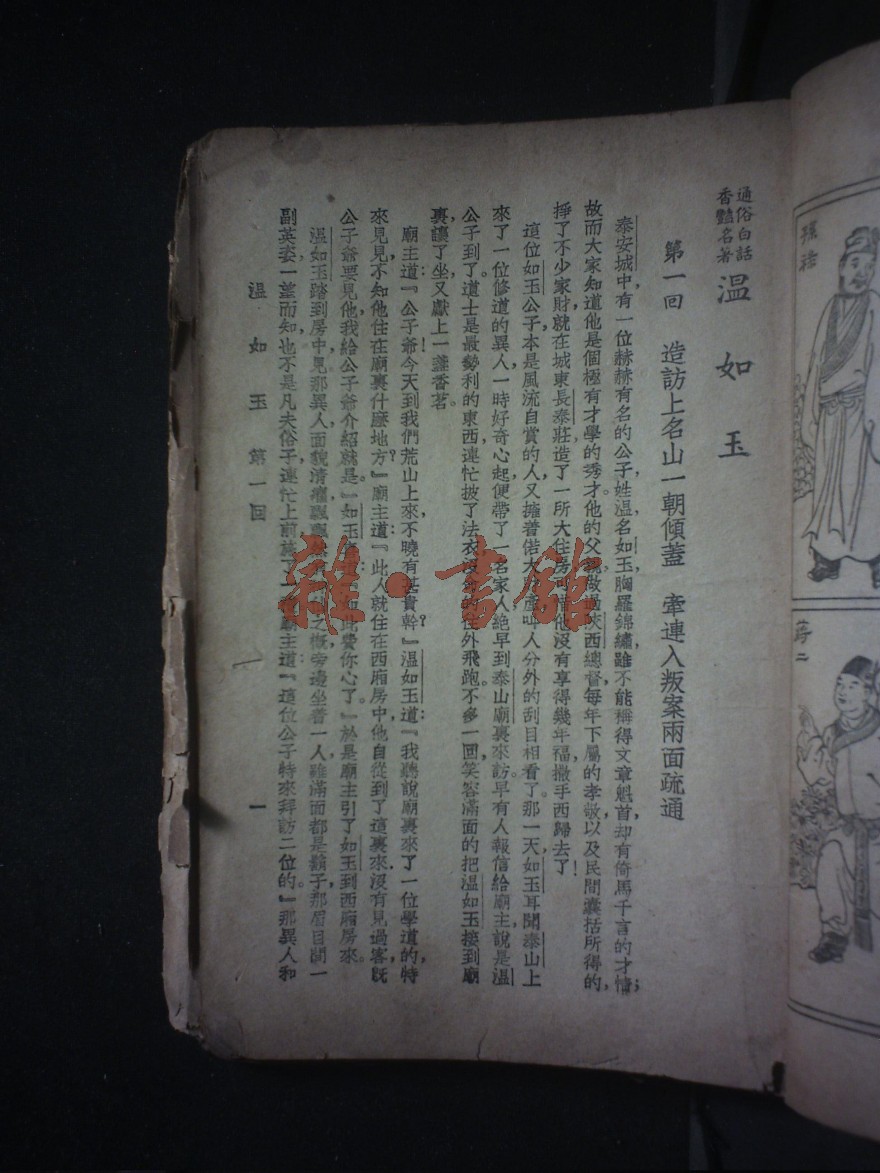 通俗白話
香豔名著
溫如玉
第一回　造訪上名山一朝傾蓋　牽連入叛案兩面疏通
泰安城中，有一位赫赫有名的公子，姓溫名如玉，胸羅錦繡，雖不能稱得文章魁首，却有倚馬千言的才情；
故而大家知道他是個極有才學的秀才，他的父親做過陝西總督，每年下屬的孝敬，以及民間囊括所得的，
掙了不少家財，就在城東長泰莊，造了一所大住房，可惜他沒有享得幾年福，撒手西歸去了！
這位如玉公子，本是風流自賞的人，又擁着偌大，人分外的刮目相看了。那一天，如玉耳聞泰山上
來了一位修道的異人，一時好奇心起，便帶了一名家人，絶早到泰山廟裏來訪。早有人報信給廟主，說是溫
公子到了。道士是最勢利的東西，連忙披了法衣，沒命的往外飛跑。不多一回，笑容滿面的，把溫如玉接到廟
裏，讓了坐，又獻上一盞香茗。
廟主道：『公子爺！今天到我們荒山上來，不曉有甚貴幹？』溫如玉道：『我聽說廟裏來了一位學道的，特
來見見，不知他住在廟裏什麽地方？』廟主道：『此人就住在西廂房中，他自從到了這裏來，沒有見過客，既
公子爺要見他，我給公子爺介紹就是。』如玉道：『如此費你心了。』於是廟主引了如玉，到西廂房來。
溫如玉踏到房中，見那異人面貌清癯，飄飄然之概，旁邊坐着一人，雖滿面都是鬍子，那眉目間一
副英姿，一望而知也不是凡夫俗子，連忙上前施了一禮，廟主道：『這位公子特來拜訪二位的。』那異人和
溫如玉　第一回　一
孫
蔣二
雜·書館